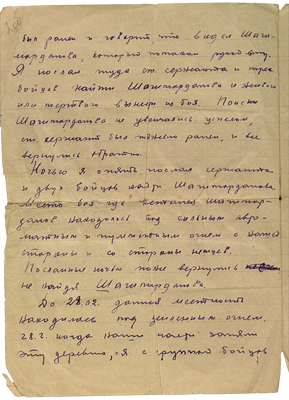 был ранен и говорит что видел Шагимарданова, который
Я послал туда ст. сержанта и трех
бойцов найти Шагимарданова и живого
или мертвого вынести из боя. Поиски
Шагимарданова не увенчались успехом,
ст. сержант был тяжело ранен, и все
вернулись обратно.
Ночью я опять послал сержанта
и двух бойцов найти Шагимарданова
Место боя где остался Шагимарданов находилось под сильным автоматным и пулеметным огнем с нашей
стороны и со стороны немцев.
Посланные ночью тоже вернулись
не найдя Шагимарданова.
До 28.02. данная местность
находилась под усиленным огнем.
28.2. когда наши части заняли
эту деревню, я с группой бойцов